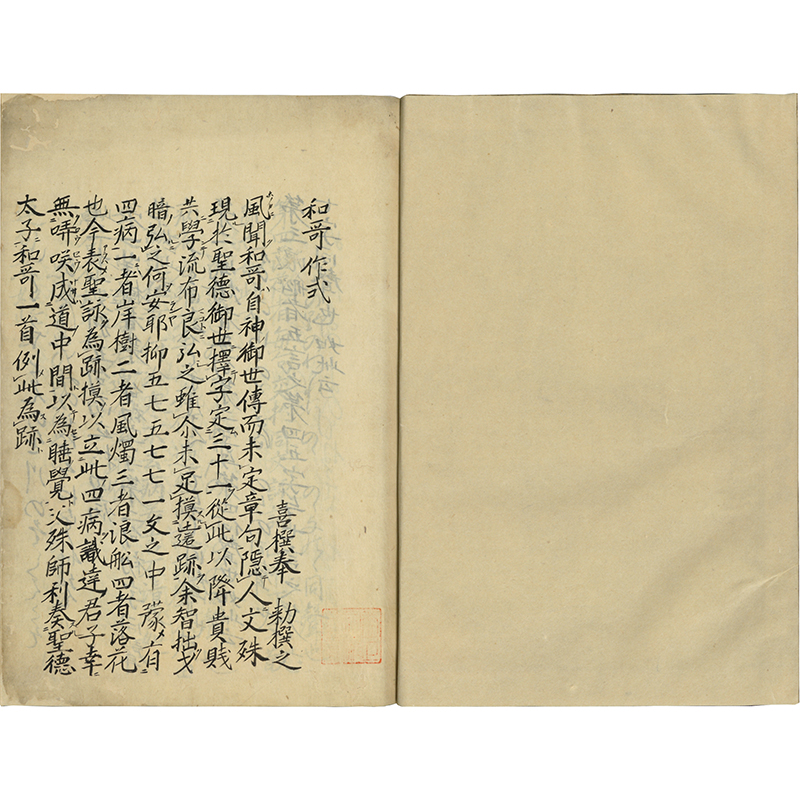 和哥作式
喜撰奉 勅撰之
風聞和哥自神御世傳而未定章句隠人文殊
現於聖德御世擇字定三十一從此以降貴賎
共學流布良弘之雖尒未足摸遺跡余智拙才
暗弘之何安耶抑五七五七七一文之中 有
四病一者岸樹二者風燭三者浪舩四者落花
也今表聖詠為跡摸以立此四病識達君子幸
無哢咲成道中間以為睡覺文殊師利奏聖德
太子和哥一首例此為跡